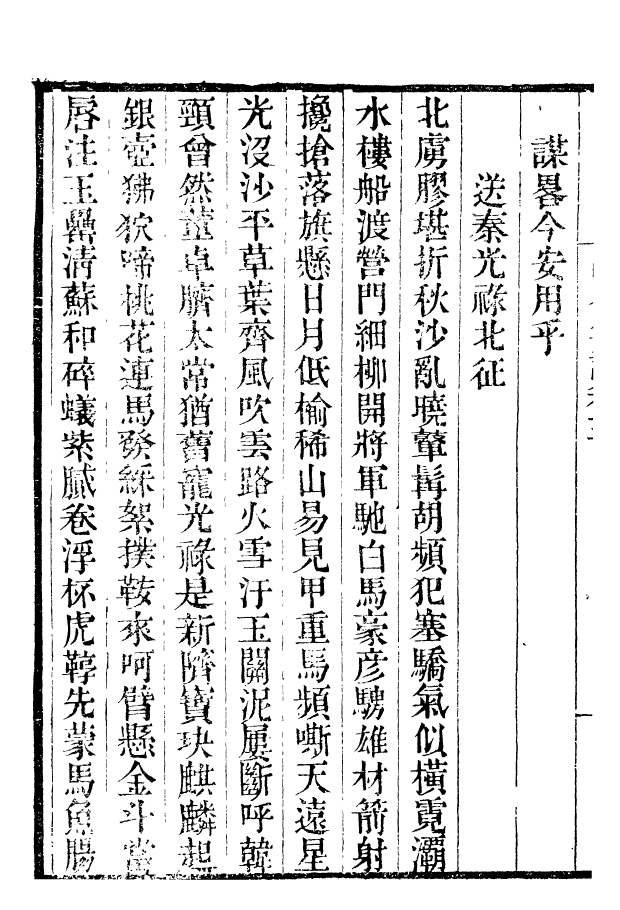 謀畧今安用乎
送秦光祿北征
北虜膠堪折秋沙亂曉鼙髯胡頻犯塞驕氣似橫霓灞
水樓船渡營門細柳開將軍馳白馬豪彥騁雄材箭射
攙搶落旗懸日月低榆稀山易見甲重馬頻嘶天遠星
光沒沙平草葉齊風吹雲路火雪汙玉關泥屢斷呼韓
頸曾然董卓臍太常猶舊寵光祿是新隮寶玦麒麟起
銀壺狒狖啼桃花連馬發綵絮撲鞍來呵臂懸金斗當
唇注玉罍清蘇和碎蟻紫膩卷浮杯虎鞹先蒙馬魚腸